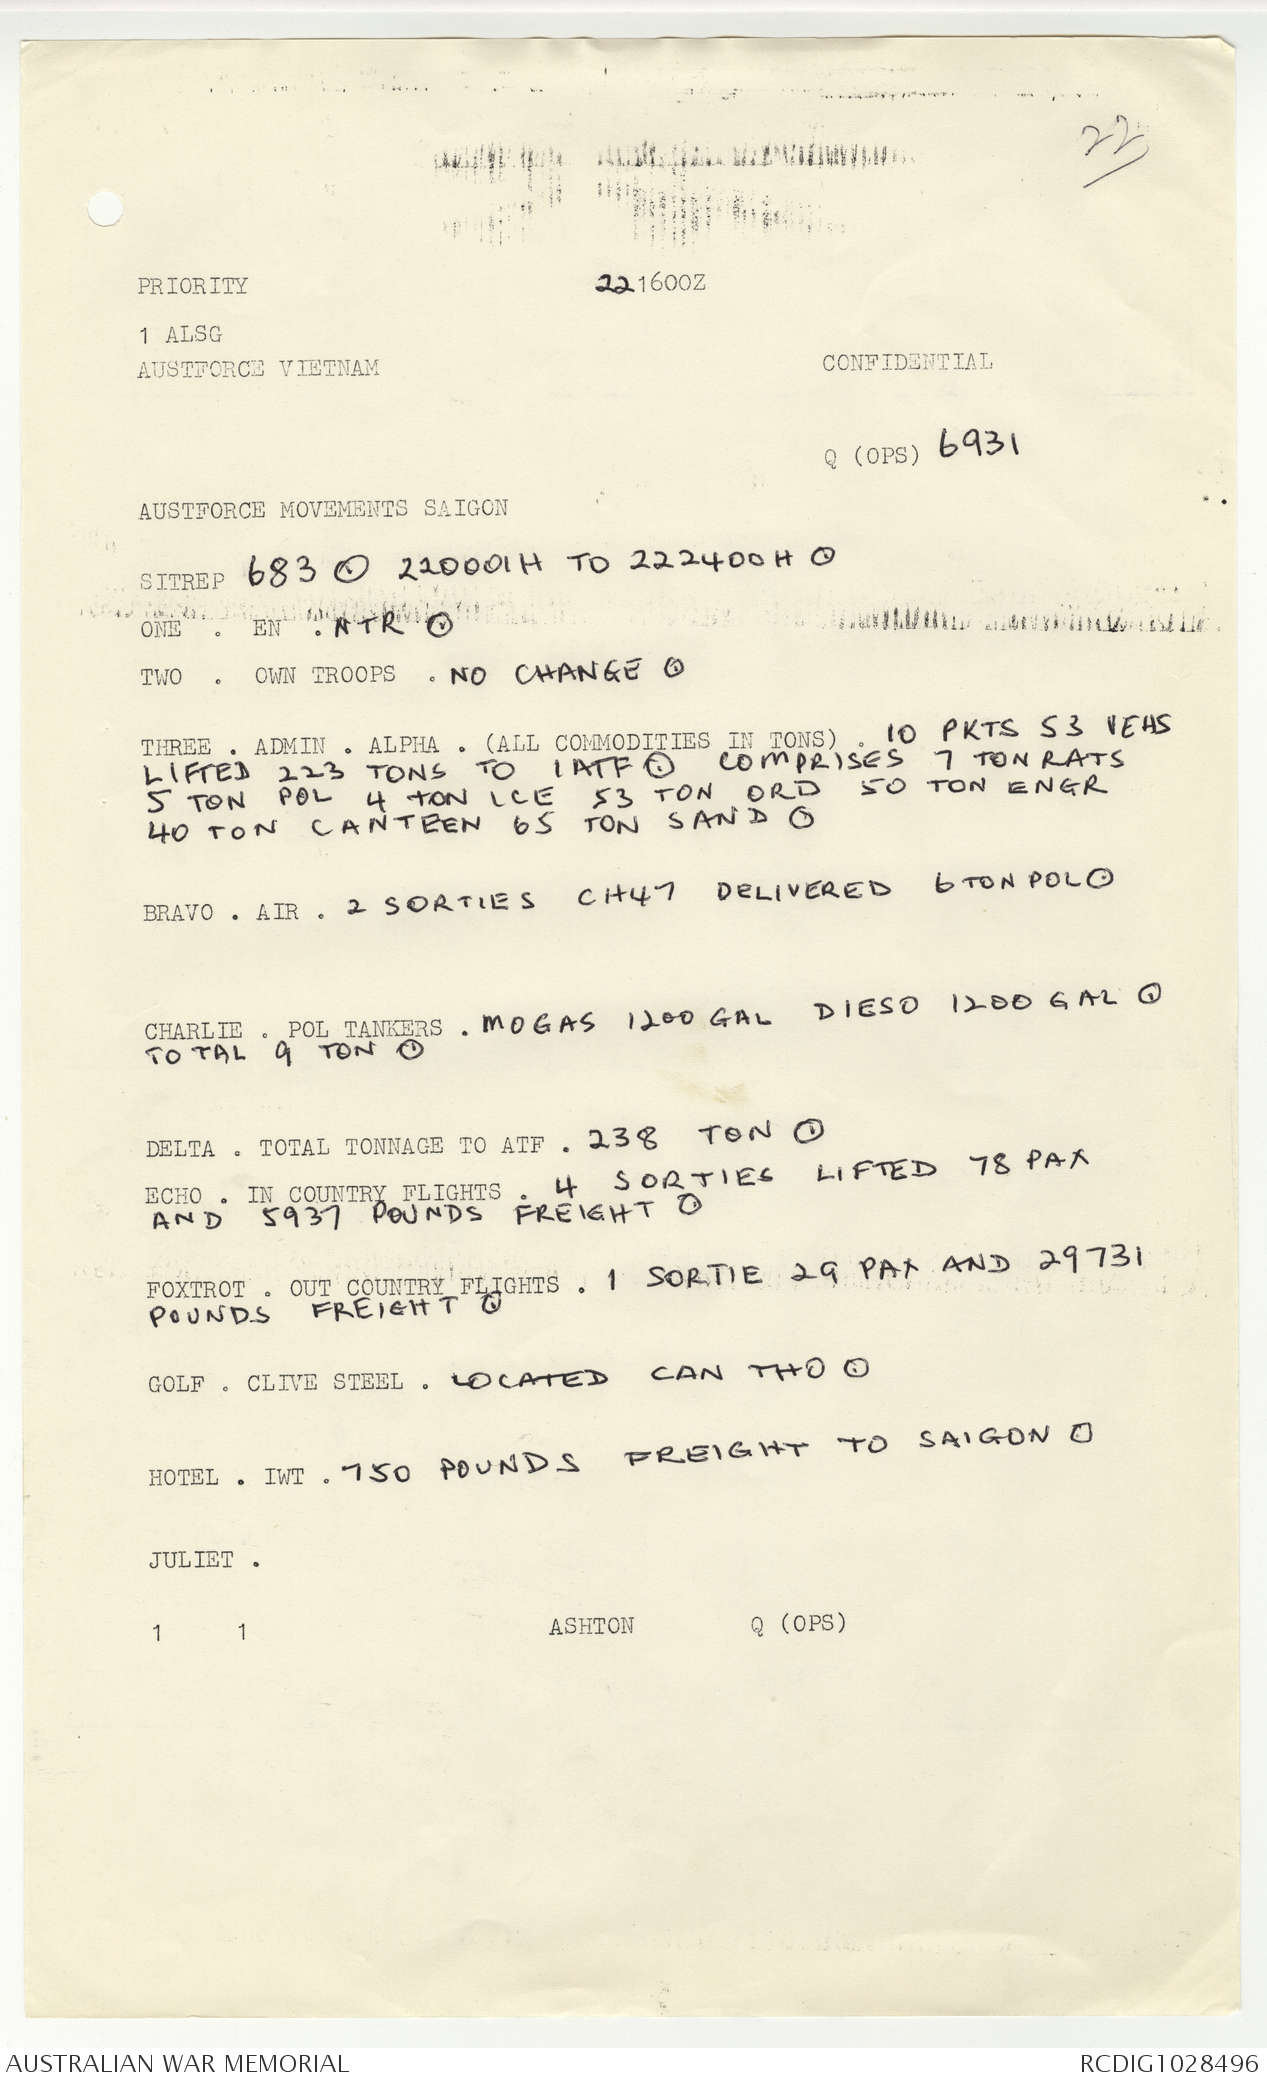 22
PRIORITY 221600Z
1 ALSG
AUSTFORCE VIETNAM CONFIDENTIAL
Q (OPS) 6931
AUSTFORCE MOVEMENTS SAIGON
SITREP 683 ⊙ 220001H TO 222400H ⊙
ONE . EN . NTR ⊙
TWO . OWN TROOPS . NO CHANGE ⊙
THREE . ADMIN . ALPHA . (ALL COMMODITIES IN TONS) . 10 PKTS 53 VEHS
LIFTED 223 TONS TO 1ATF ⊙ COMPRISES 7 TON RATS
5 TON POL 4 TON ICE 53 TON ORD 50 TON ENGR
40 TON CANTEEN 65 TON SAND ⊙
BRAVO . AIR . 2 SORTIES CH47 DELIVERED 6 TON POL ⊙
CHARLIE . POL TANKERS . MOGAS 1200 GAL DIESO 1200 GAL ⊙
TOTAL 9 TON ⊙
DELTA . TOTAL TONNAGE TO ATF . 238 TON ⊙
ECHO . IN COUNTRY FLIGHTS . 4 SORTIES LIFTED 78 PAX
AND 5937 POUNDS FREIGHT ⊙
FOXTROT . OUT COUNTRY FLIGHTS . 1 SORTIE 29 PAX AND 29731
POUNDS FREIGHT ⊙
GOLF . CLIVE STEEL . LOCATED CAN THO ⊙
HOTEL . IWT . 750 POUNDS FREIGHT TO SAIGON ⊙
JULIET .
1 1 ASHTON Q (OPS)
AUSTRALIAN WAR MEMORIAL RCDIG1028496